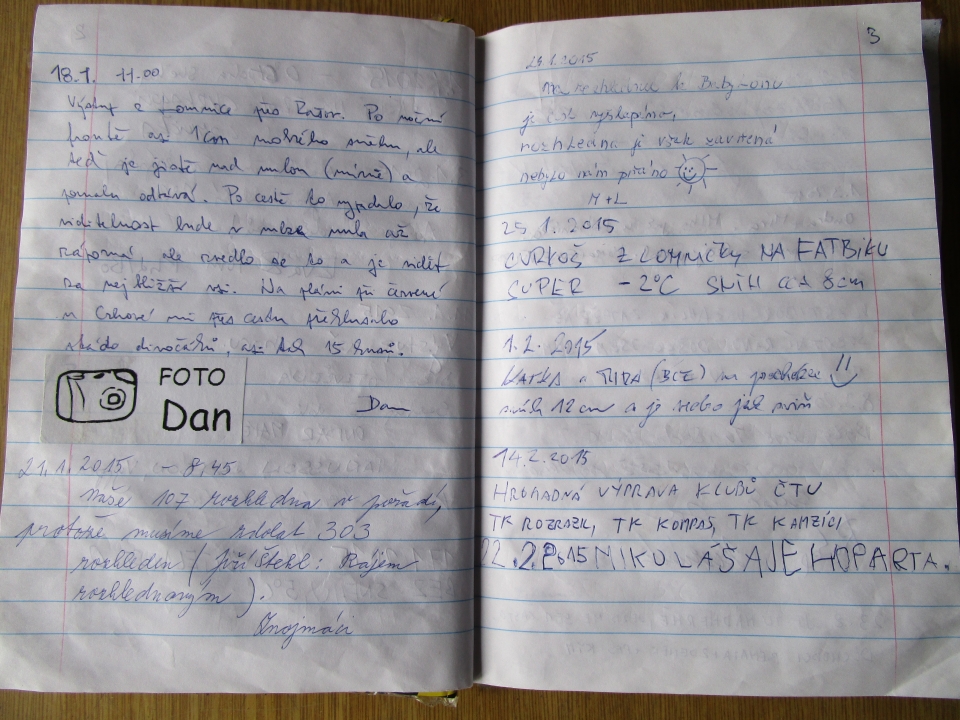 18.1. 11.00
Výšlap z Lomnice přes Rašov. Po noční
frontě asi 1cm mokrého sněhu, ale
teď je jistě nad nulou (mírně) a
pomalu odtává. Po cestě to vypadalo, že
viditelnost bude v mlze nula až
záporná, ale zvedlo se to a je vidět
za nejbližší ves. Na pláni při červené
u Crhové mi přes cestu přeběhlo
stádo divočáků, asi tak 15 kusů.
FOTO
Dan
Dan
21.1. 2015 - 8,45
Naše 107 rozhledna v pořadí,
protože musíme zdolat 303
rozhleden (Jiří Štekl: Rájem
rozhlednovým).
Znojmáci
3
23.1.2015
je
rozhledna je však zavřená
nebylo nám přáno
M+L
25.1.2015
Z LOMNIČKY NA FATBIKU
SUPER -2°C SNÍH CCA 8cm
1.2.2015
KATKA a (BCE) na
sníh 12cm a je
14.2.2015
HROMADNÁ VÝPRAVA KLUBŮ ČTU
TK ROZRAZIL, TK KOMPAS, TK KAMZÍCI,
22.2.2015 MIKULÁŠ AJE HOPARTA.